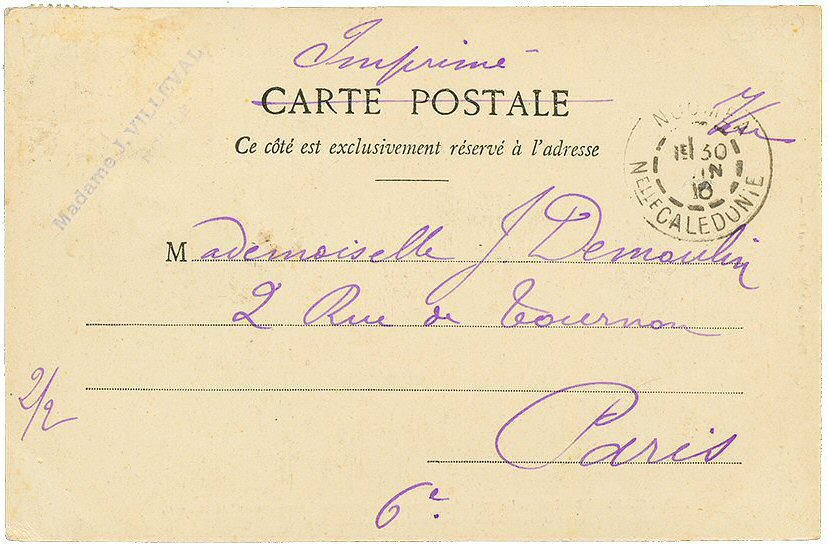 Imprimé
CARTE POSTALE
Ce côté est exclusivement réservé à l'adresse
Madame J. VILLEVAL
NOUMEA
1E 30
JUIN
10
NELLE CALEDONIE
Mademoiselle J Demoulin
2 Rue de Tournon
2/2
Paris
6e.